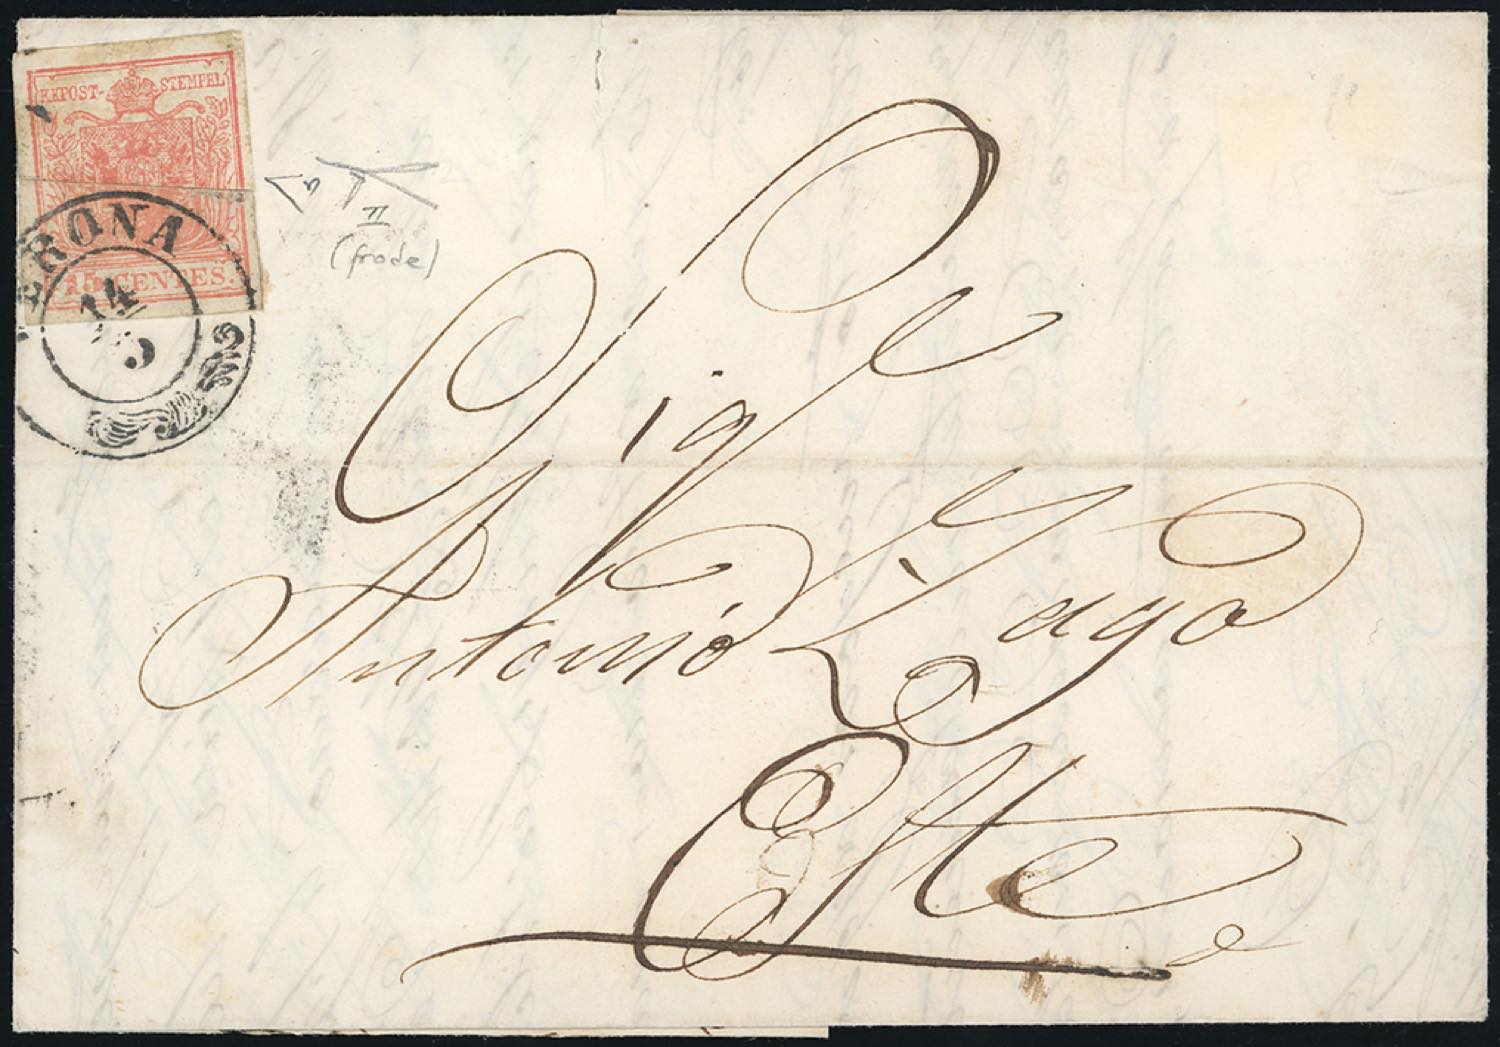 KKPOST-STEMPEL
15 CENTES.
VERONA
14
5
II
(frode)
Sig.e
Antonio Zago
Este